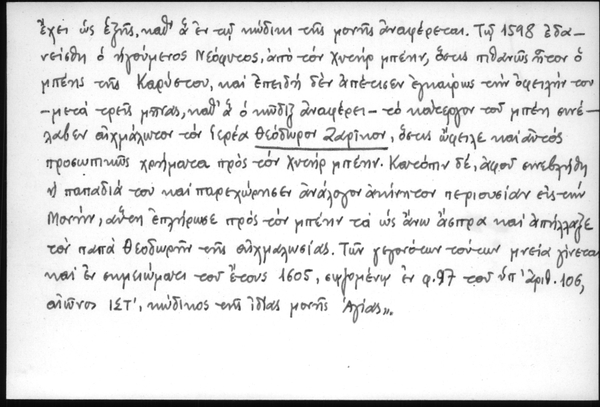 ἔχει ὡς ἑξῆς, καθ' ἃ ἐν τῷ κώδικι τῆς μονῆς ἀναφέρεται. Τῷ 1598 ἐδα-
νείσθη ὁ ἡγούμενος Νεόφυτος, ἀπὸ τὸν Χυτὴρ μπέην, ὅστις πιθανῶς ἦτον ὁ
μπέης τῆς Καρύστου, καὶ ἐπειδὴ δὲν ἀπέτισεν ἐγκαίρως τὴν ὀφειλήν του
-μετὰ τρεῖς μῆνας, καθ' ἃ ὁ κῶδιξ ἀναφέρει- τὸ κάτεργον τοῦ μπέη συνέ-
λαβεν αἰχμάλωτον τὸν ἱερέα Θεόδωρον Ζαρῖκον, ὅστις ὤφειλε καὶ αὐτὸς
προσωπικῶς χρήματα πρὸς τὸν Χυτὴρ μπέην. Κατόπιν δέ, ἀφοῦ συνεβλήθη
ἡ παπαδιά του καὶ παρεχώρησεν ἀνάλογον ἀκίνητον περιουσίαν εἰς τὴν
Μονήν, αὕτη ἐπλήρωσε πρὸς τὸν μπέην τὰ ὡς ἄνω ἄσπρα καὶ ἀπήλλαξε
τὸν παπᾶ Θεοδωρῆν τῆς αἰχμαλωσίας. Τῶν γεγονότων τούτων μνεία γίνεται
καὶ ἐν σημειώματι τοῦ ἔτους 1605, σῳζομένῳ ἐν φ. 97 τοῦ ὑπ' ἀριθ. 106,
αἰῶνος ΙΣΤ', κώδικος τῆς ἰδίας μονῆς Ἁγίας».